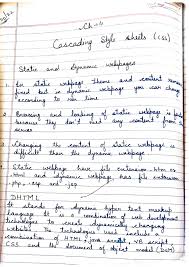 Ch-4
Cascading Style Sheets (CSS)
Static and Dynamic webpages
1. In static webpage theme and content remain
fixed but in dynamic webpage you can change
according to run time.
2. Browsing and loading of static webpage is
because they don't need any content from
server
3. Changing the content of static webpage is
difficult than the dynamic webpage
4. Static webpage have file extension .htm or
.html and dynamic webpage has file extension
.php, .asp and .jsp
DHTML
It stands for dynamic hyper text markup
language. It is a combination of web development
technologies to create dynamically changing
website. The technologies include
combination of HTML, Java script, VB script
CSS and the document of object model (DOM)